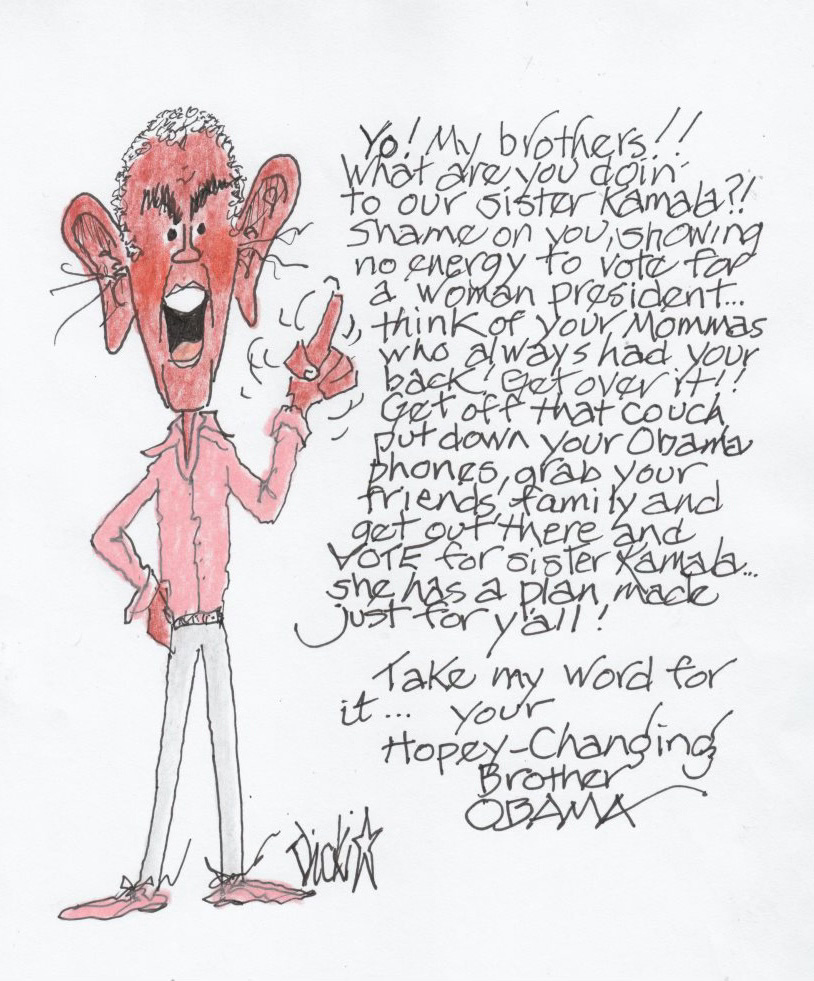 Yo! My brothers!!
What are you doin'
to our sister Kamala?!
Shame on you, showing
no energy to vote for
a woman president...
think of your Mommas
who always had your
back! Get over it!!
Get off that couch
put down your Obama
phones, grab your
friends, family and
get out there and
VOTE for sister Kamala...
she has a plan made
just for y'all!
Take my word for
it... your
Hopey-Changing
Brother
OBAMA